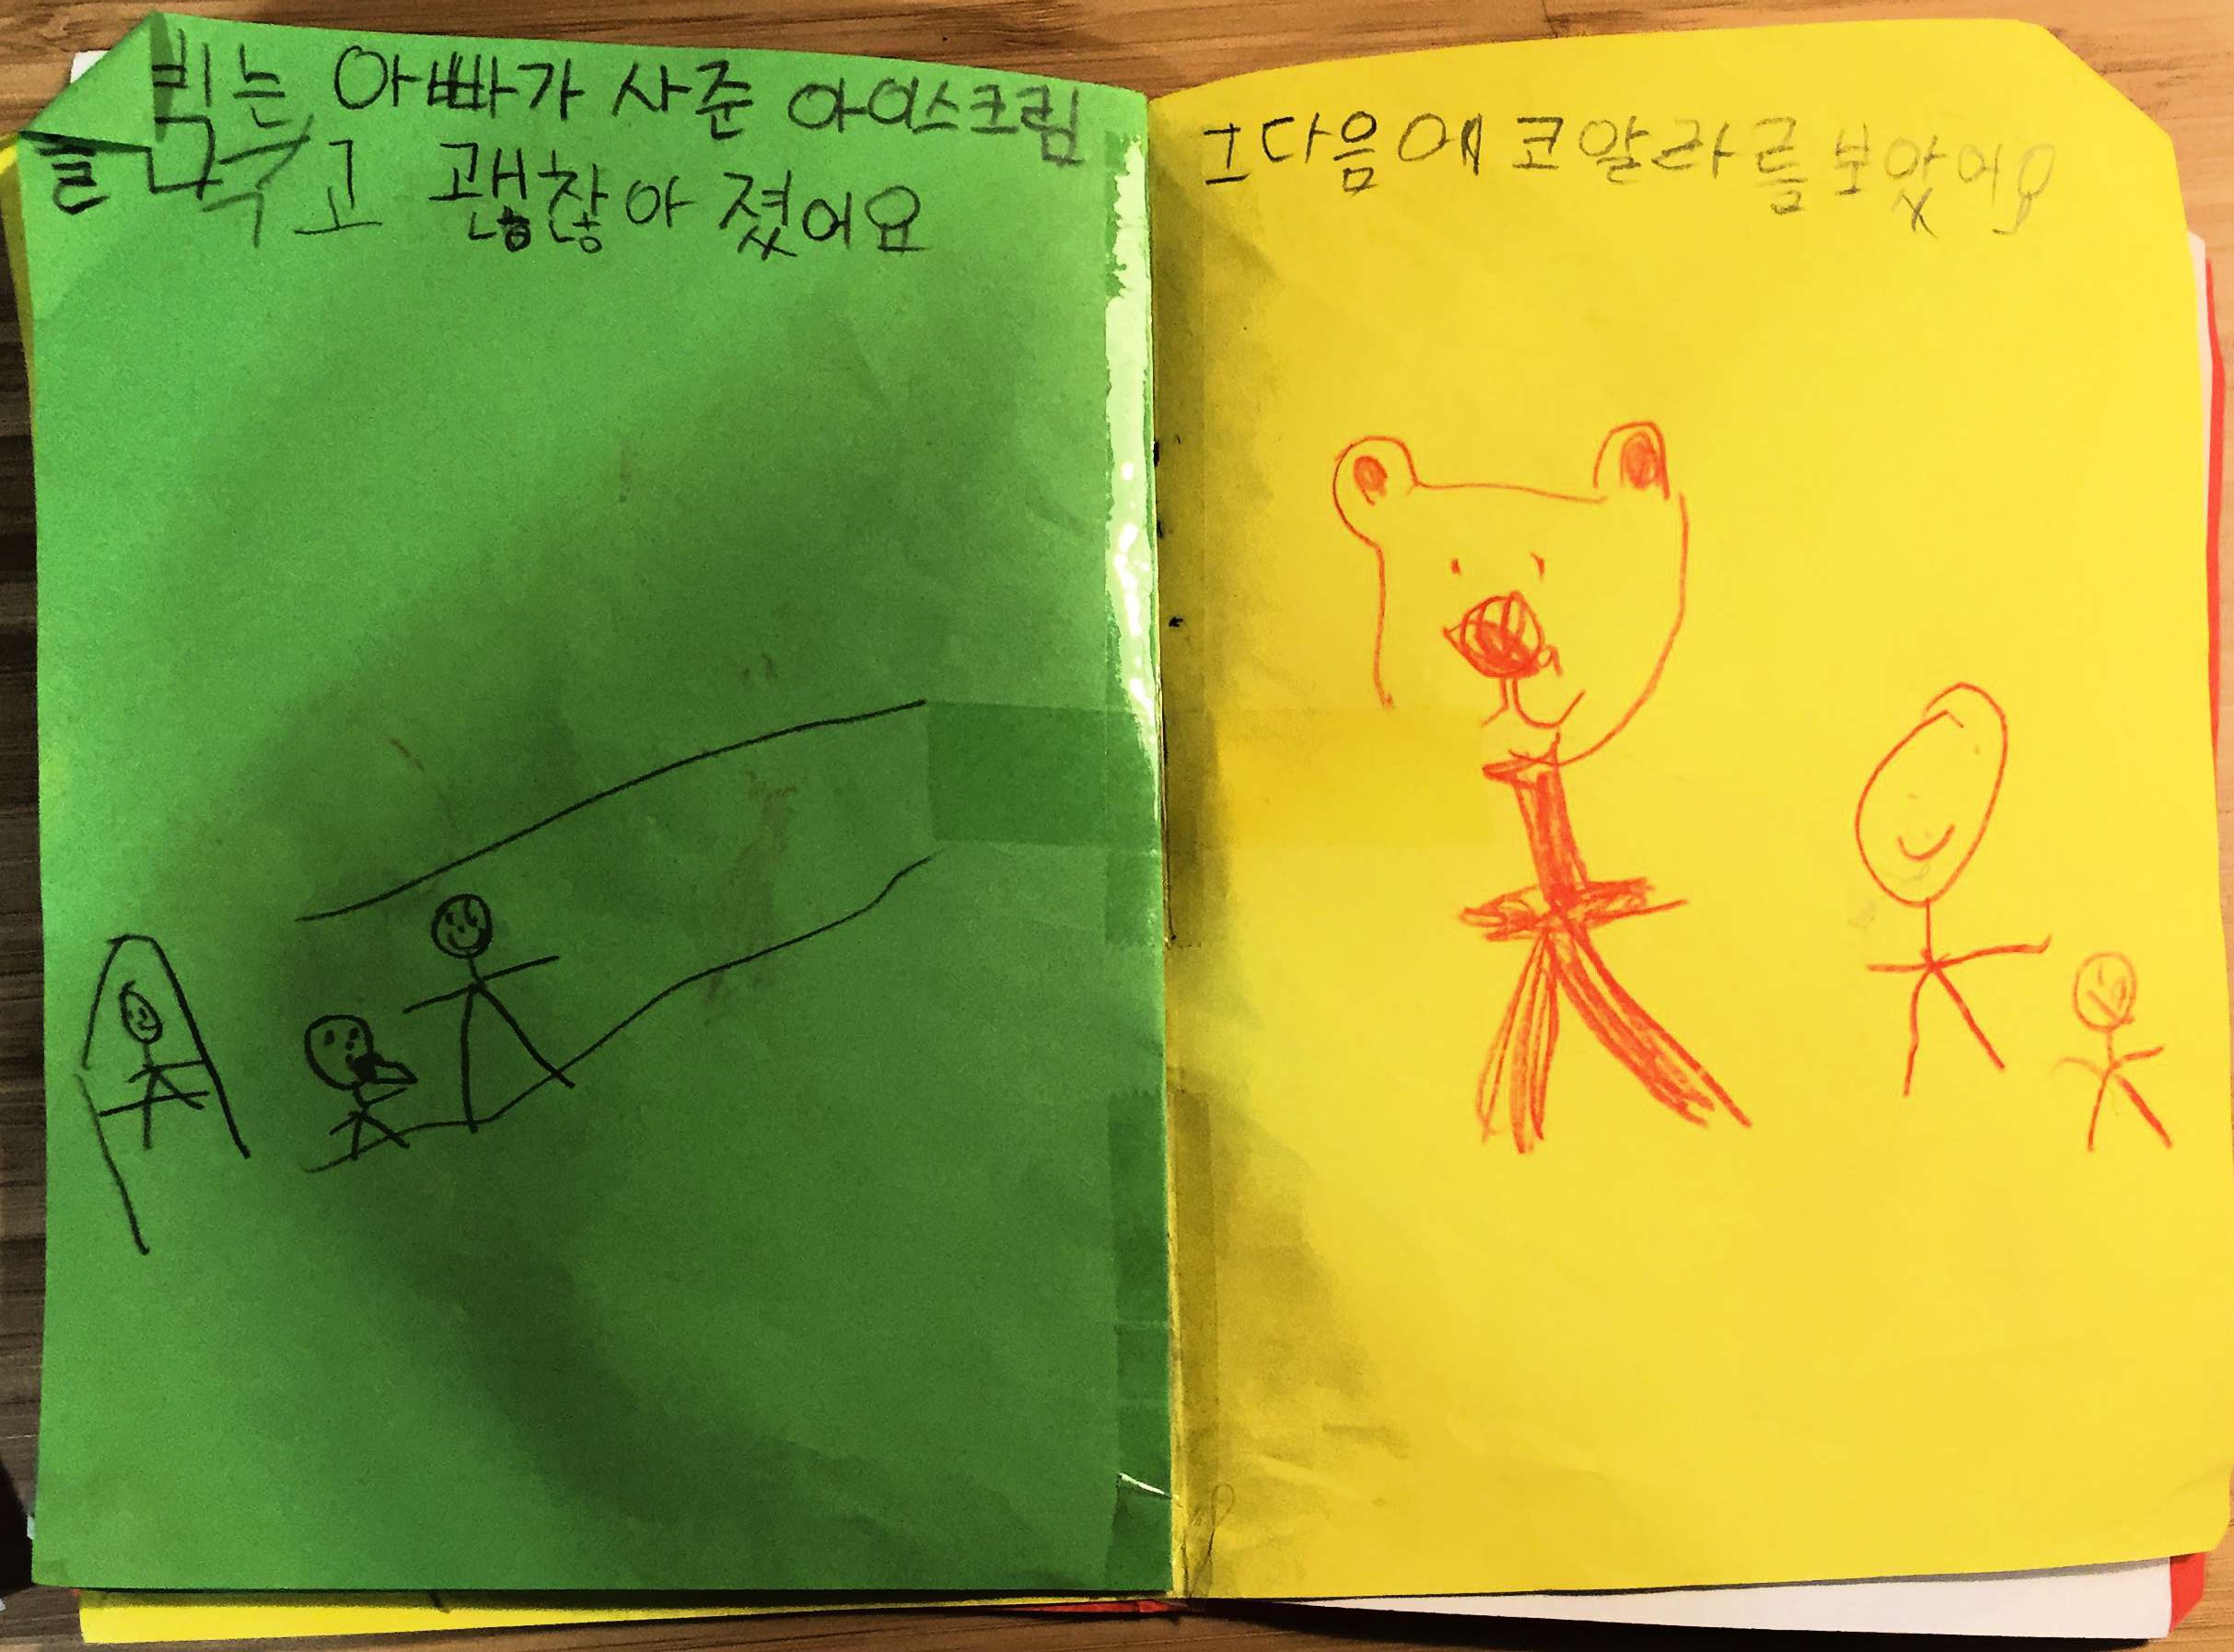 아빠가 사준 아이스크림
를 고 괜찮아 졌어요
그다음에 코알라를 보았어요